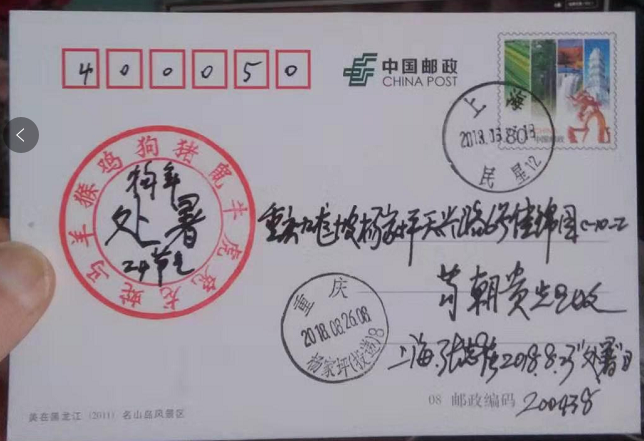 400050
中国邮政
CHINA POST
上海
民星12
猴鸡狗猪鼠牛虎兔龙蛇马羊
狗年
处暑
24节气
重庆九龙坡杨家坪天兴路6号佳锦园C-10-2
朝贵
重庆
2018.08.26.08
杨家坪(投递)8
上海 2018.8.23"处暑"日
08 邮政编码 200438
美在黑龙江 (2011) 名山岛风景区